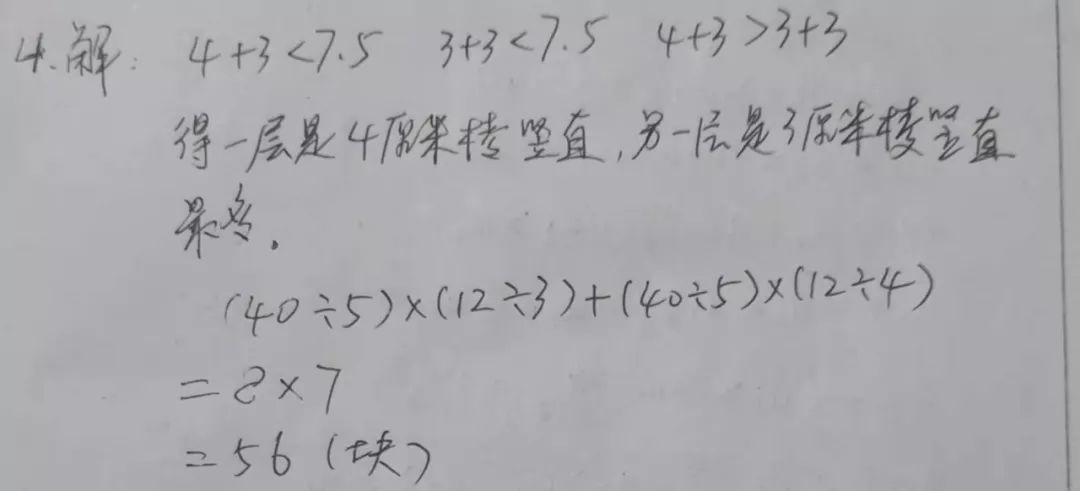 4.解: 4+3<7.5 3+3<7.5 4+3>3+3
得一层是4厘米棱竖直,另一层是3厘米棱竖直
最多.
(40÷5)×(12÷3)+(40÷5)×(12÷4)
=8×7
=56(块)